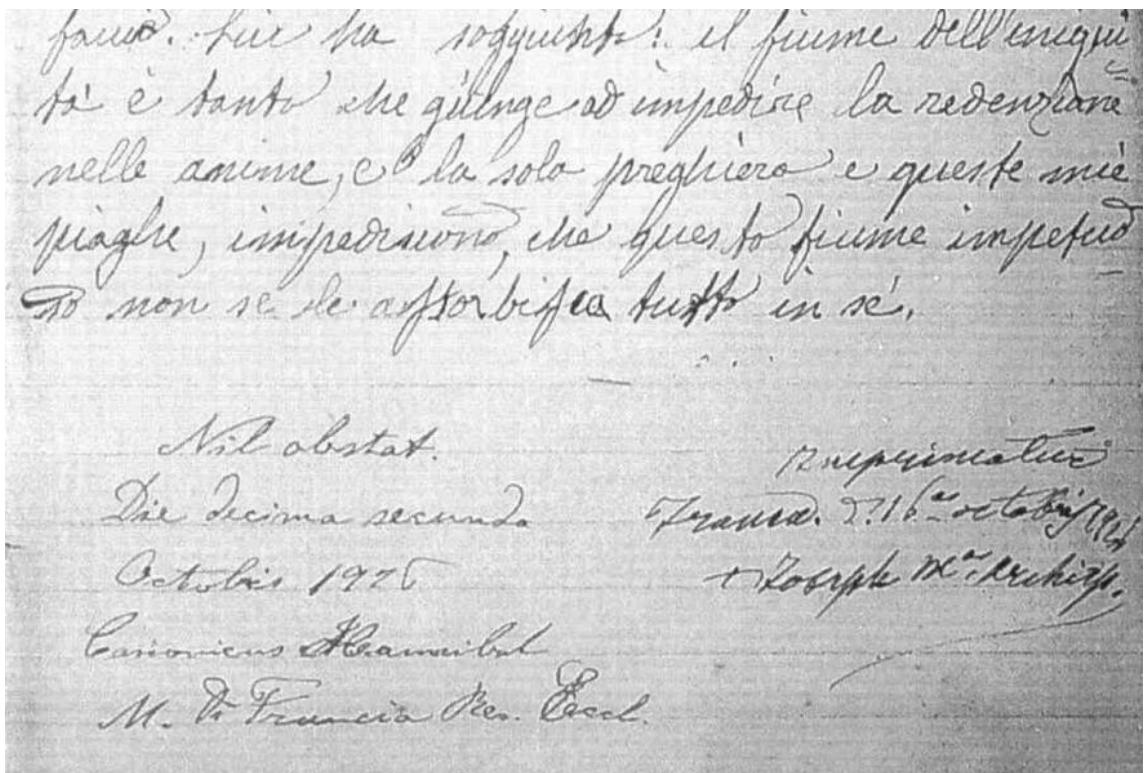 faccio. Lui ha soggiunto: il fiume dell'iniqui
tà è tanto che giunge ad impedire la redenzione
nelle anime, e la sola preghiera e queste mie
piaghe, impediscono, che questo fiume impetuo
so non se le assorbisca tutto in sé.
Nil obstat.
Die decima secunda
Octobris 1926
Canonicus Hannibal
M. Di Francia Rev. Eccl.
Imprimatur
Octobris 1926
+ Joseph M. Archiep.